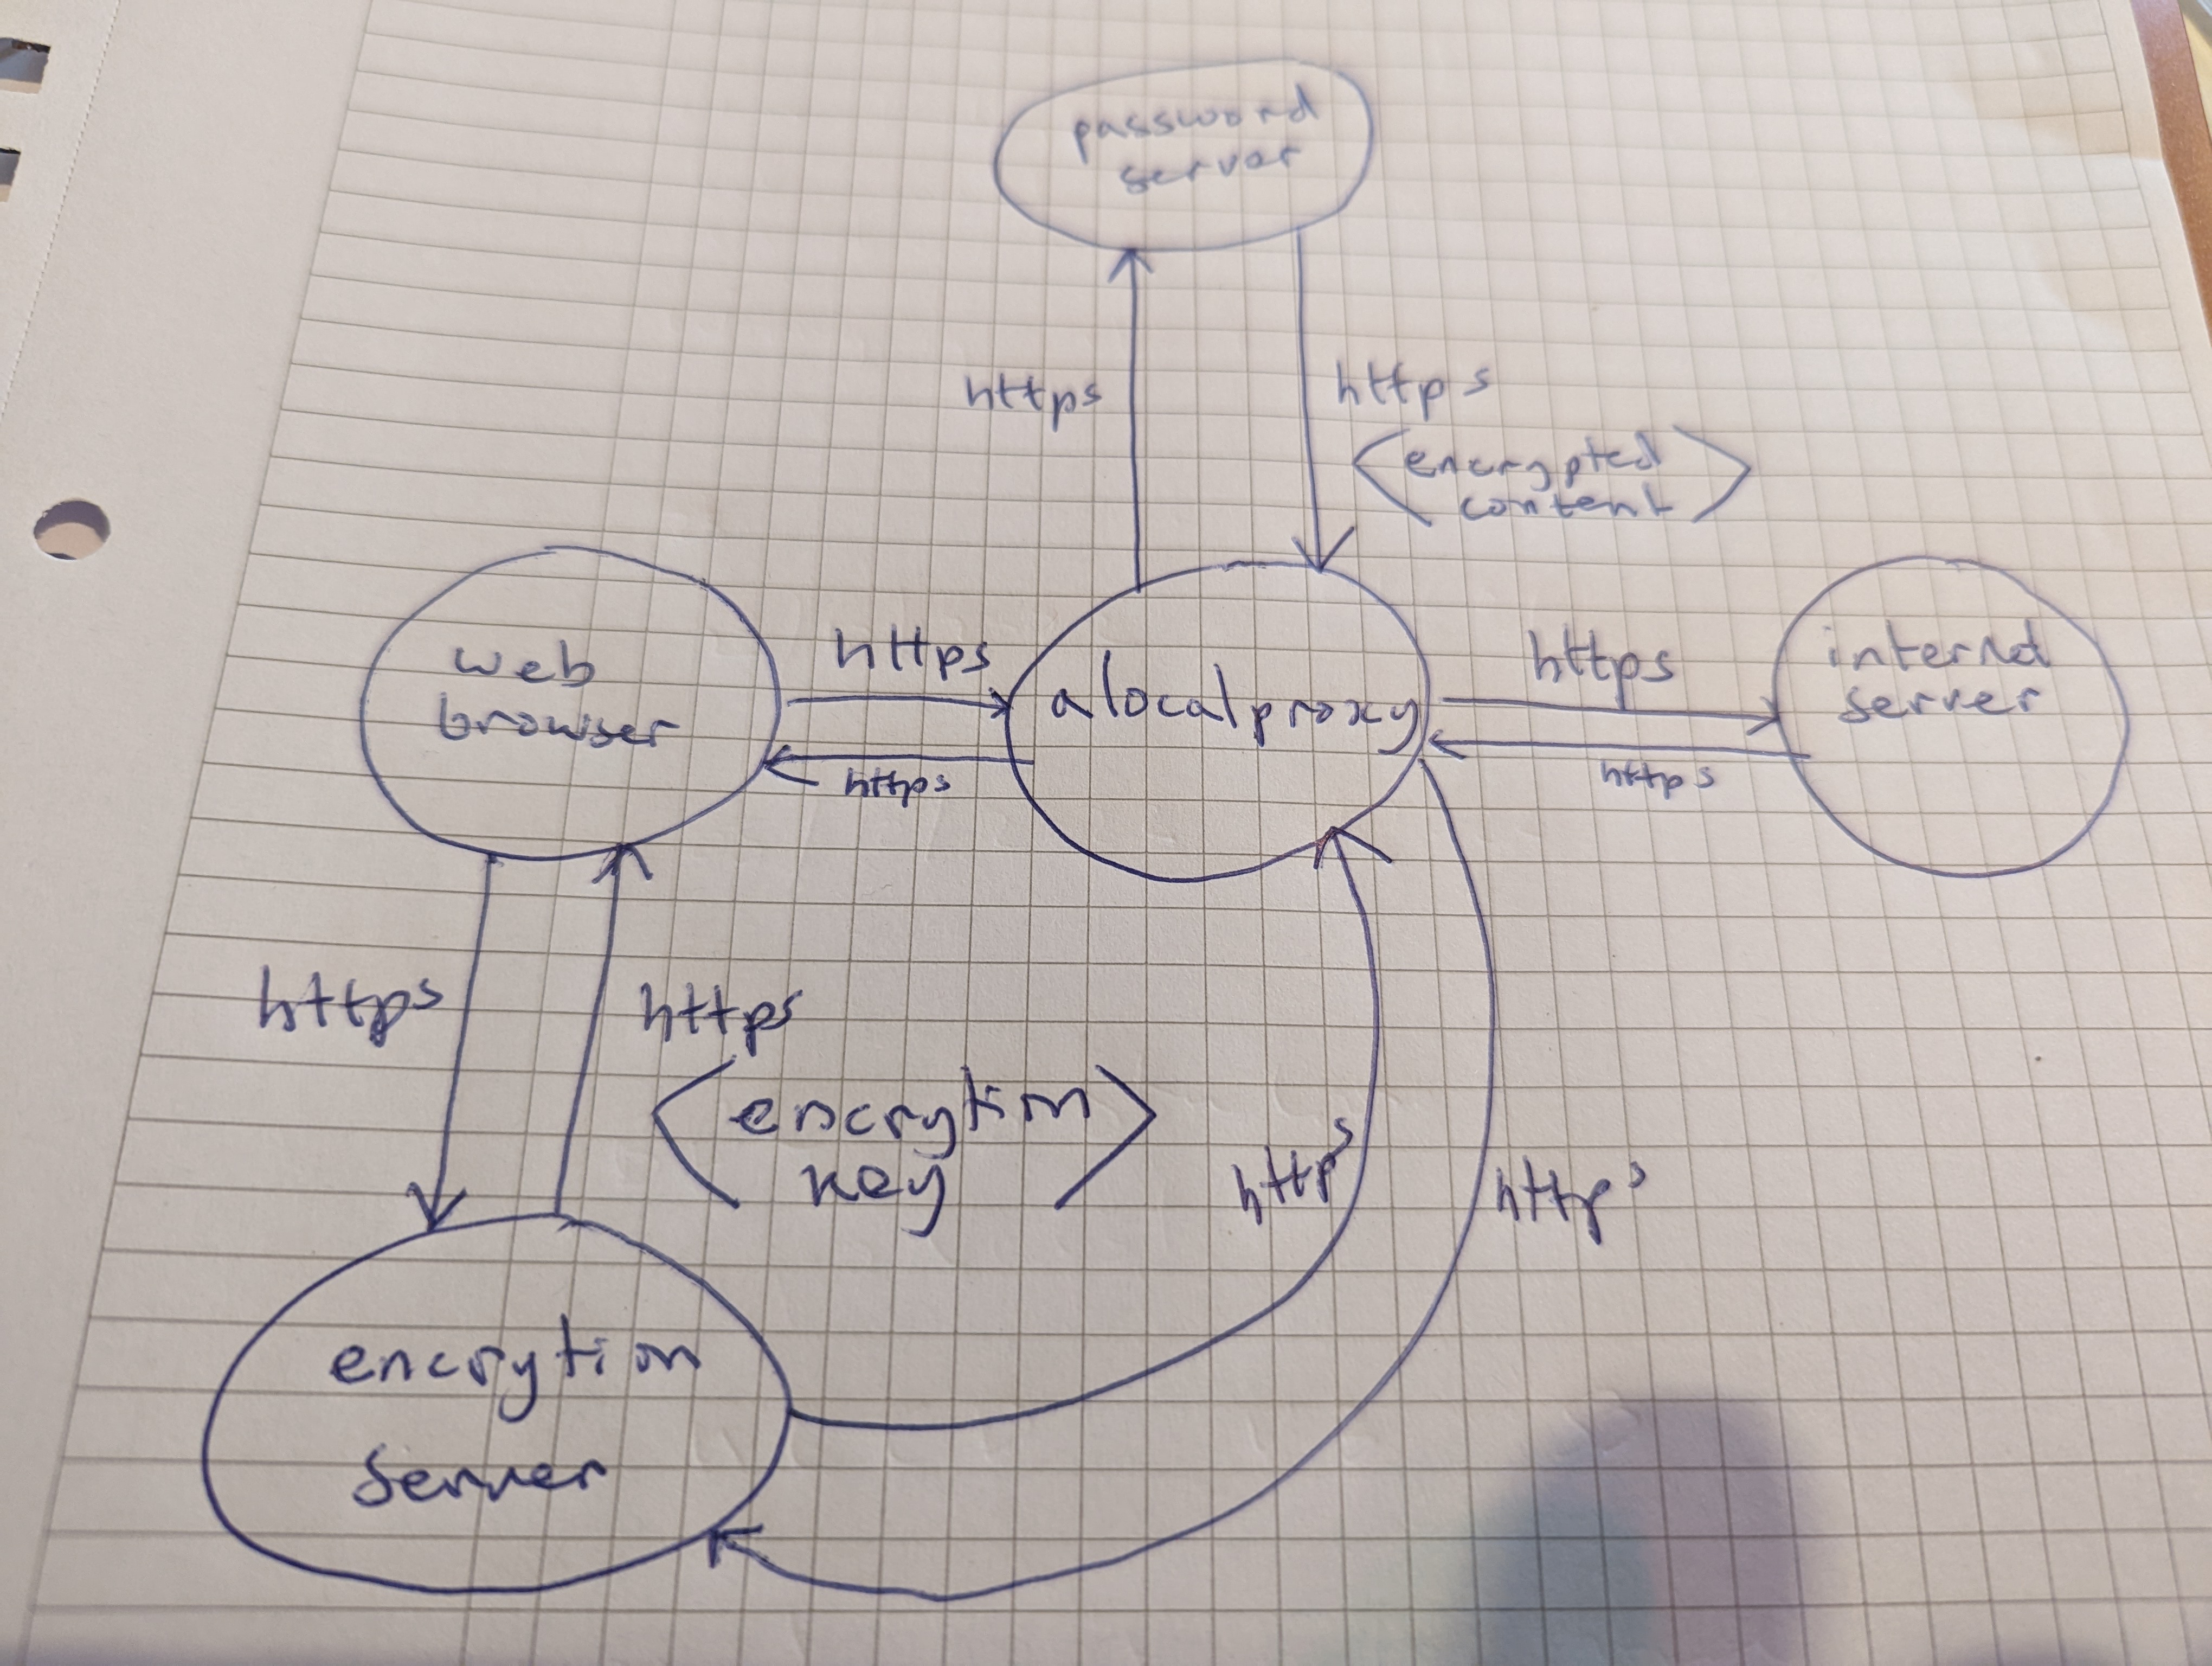 password
server
https
https
<encrypted
content>
web
browser
https
alocalproxy
https
internet
server
https
https
https
https
<encrytion
key>
https
https
encrytion
server